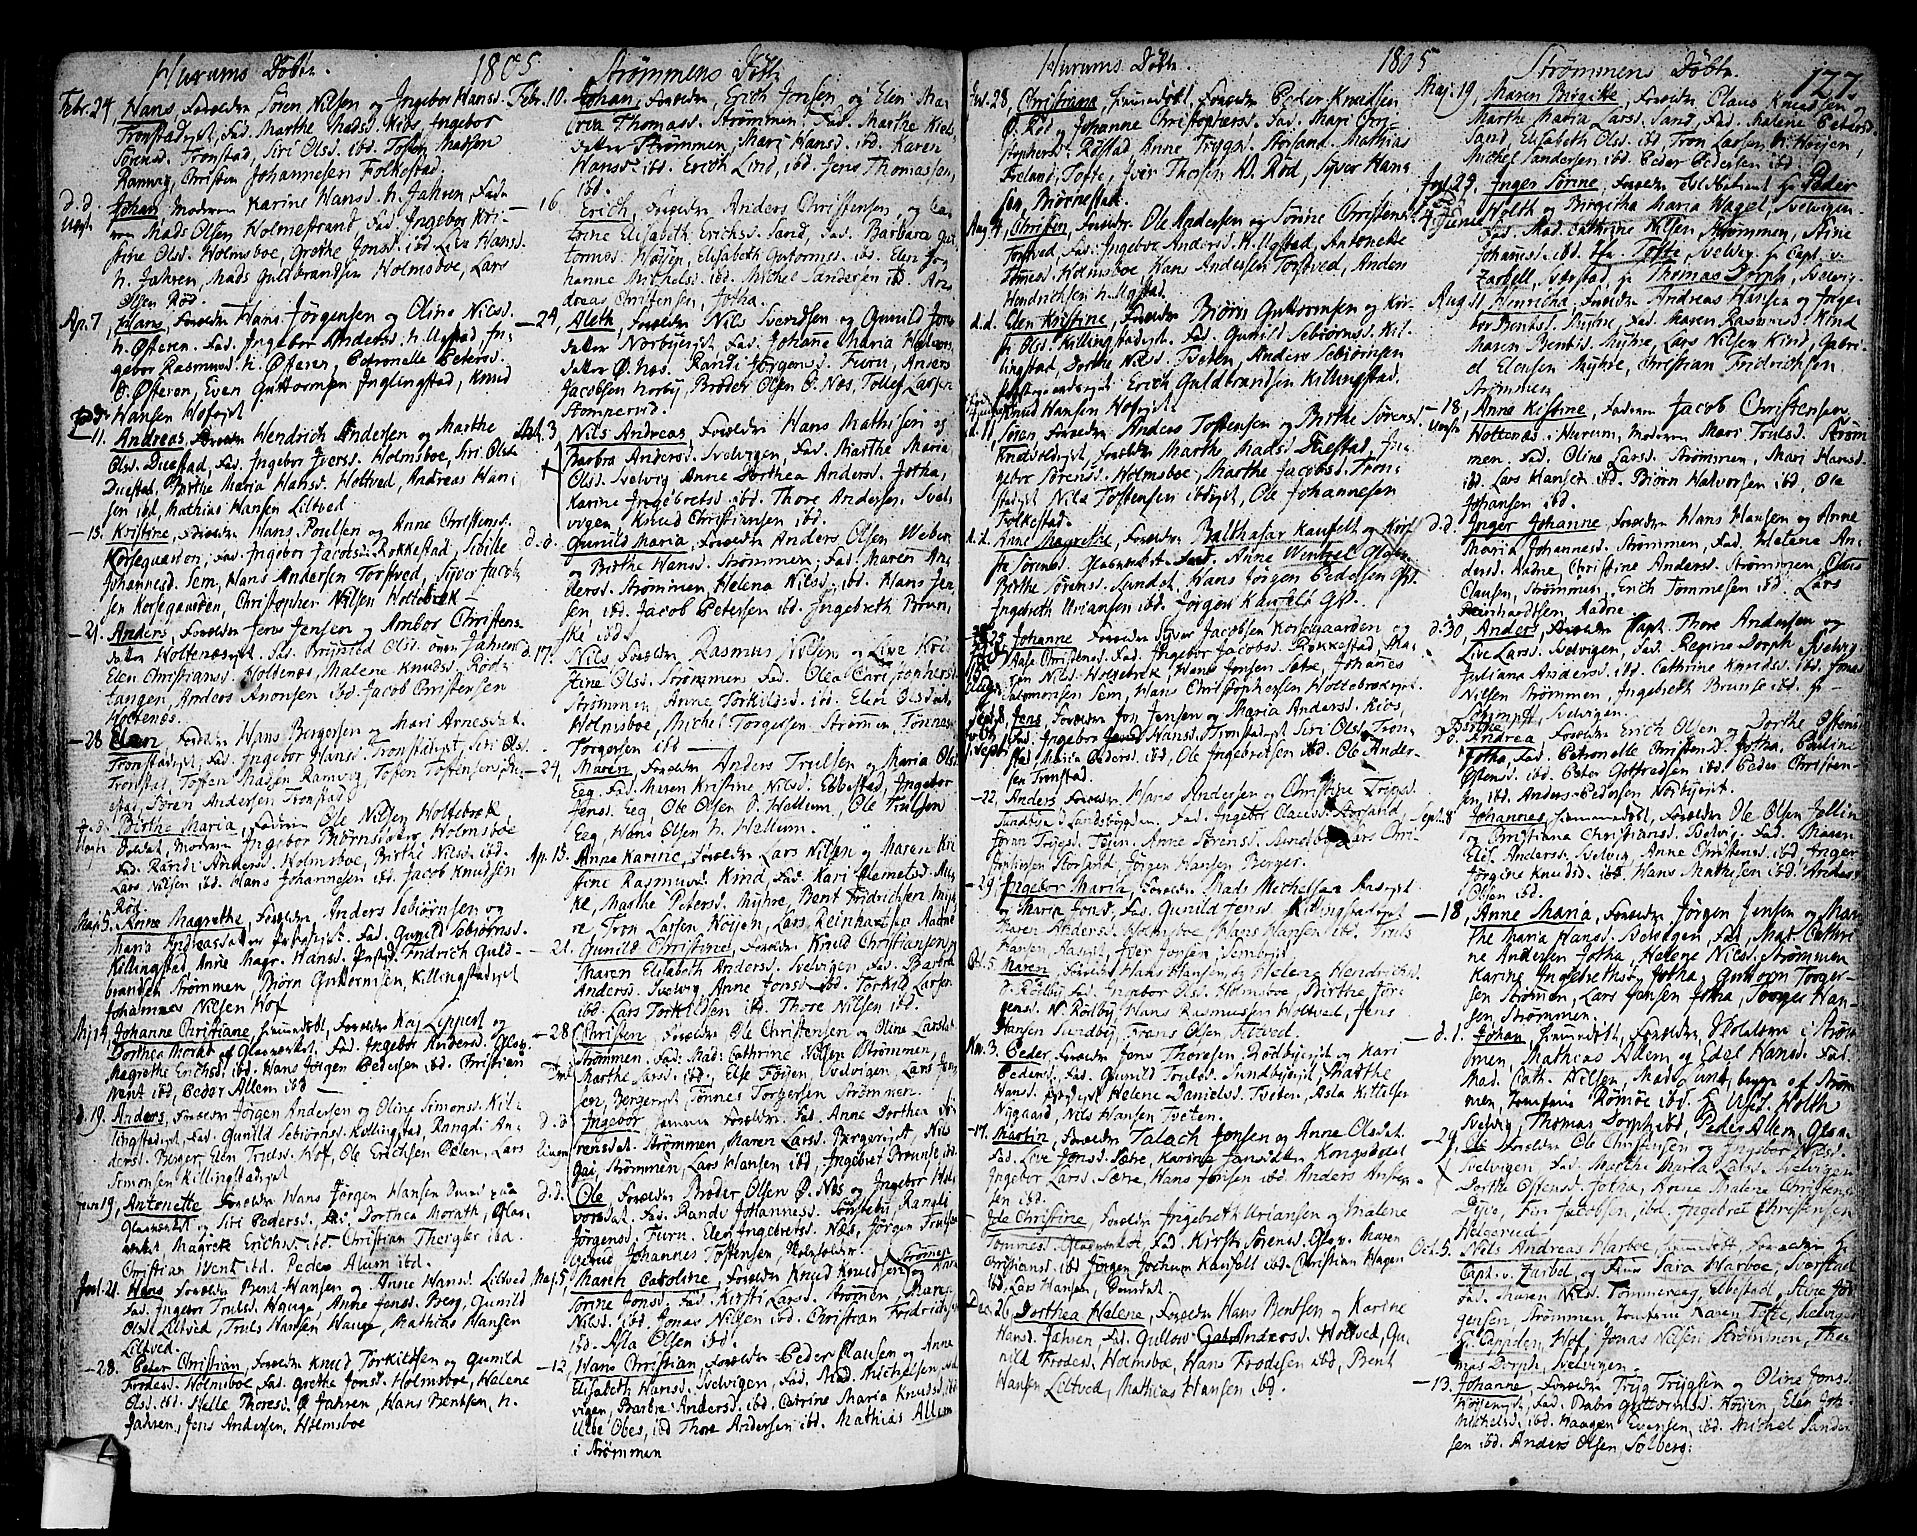 Hurums Döbte. 1805
Febr. 24, Hans, Forældre Sören Nilsen og Ingebor Hansd.
Tronstadejet, Fad. Marthe Madsd. Kiös, Ingebor
Sörensd. Tronstad, Siri Olsd. ibd. Tosten Madsen
Ramvig, Christen Johannesen Folkestad.
d. d. Johan, Moderen Karine Hansd. h. Jahren, Fade-
ren Mads Olsen Holmestrand, Fad. Ingebor Kri-
stine Olsd. Holmsboe, Grethe Jonsd. ibd. Live Hansd.
h. Jahren, Mads Guldbrandsen Holmsboe, Lars
Olsen Röd.
Ap. 7, Hans, Forældre Hans Jörgensen og Oline Nilsd.
h. Österen. Fad. Ingebor Andersd. h. Ugstad, In-
gebor Rasmusd. h. Österen, Petronelle Petersd.
Ö. Österen, Even Guttormsen Inglingstad, Knud
Hansen Hofejet
— 11. Andreas, Forældre Hendrich Andersen og Marthe
Olsd. Duestad, Fad. Ingebor Iversd. Holmsboe, Siri Olsd.
Duestad, Birthe Maria Hansd. Holtved, Andreas Han-
sen ibd. Mathias Hansen Liltved
— 15. Kristine, Forældre Hans Poulsen og Anne Christensd.
Korsegaarden, Fad. Ingebor Jacobsd. Rokkestad, Sibille
Johannesd. Sem, Hans Andersen Torstved, Syver Jacob-
sen Korsegaarden, Christopher Nilsen Holtebræk —
— 21. Anders, Forældre Jens Jensen og Ambor Christens-
datter Holtenæsejet. Fad. Brynild Olsd. övre Jahren
Elen Christiansd. Holtenæs, Malene Knudsd. Röd-
tangen, Anders Anonsen ibd. Jacob Christensen
Holtenæs.
— 28 Elen, Forældre Hans Bergersen og Mari Arnesdat.
Tronstadejet, Fad. Ingebor Hansd. Tronstadejet, Siri Olsd.
Tronstad, Tosten Madsen Ramvig, Tosten Tostensen Du-
estad, Sören Andersen, Tronstad
d. d. Birthe Maria, Faderen Ole Nilsen Holtebræk
Ingebor Biörnsd. Holmsboe
Fad. Randi Andersd. Holmsboe, Birthe Nilsd. ibd.
Lars Nilsen ibd. Hans Johannesen ibd. Jacob Knudsen
Röd
Maj 5. Karine Magrethe, Forældre Anders Sebiörnsen og
Maria Andreasdatter Fad. Gunild Sebiörnsd.
Killingstad, Anne Magr. Hansd. Fridrich Guld-
brandsen Strömmen, Biörn Guttormsen, Killingstadejet
Johannes Nilsen Hof
Mj. 14, Johanne Christiane, Forældre Kaj Lippert og
Dorthea Morath af Glasværket. Fad. Ingebor Andersd. Glasv.
Magrethe Erichsd. ibd. Hans Jörgen Pedersen ibd. Christian
Went ibd. Peder Allem ibd —
d. 19. Anders, Forældre Jörgen Andersen og Oline Simonsd. Kil-
lingstadejet, Fad. Gunild Sebiörnsd. Killingstad, Rangdi An-
dersd. Berger, Elen Trulsd. Hof, Ole Erichsen Ödeen, Lars
Simonsen Killingstadejet
Juni 9, Antonette, Forældre Hans Jörgen Hansen
Glasværket og Siri Pedersd. Fad. Dorthea Morath, Glas-
værket, Magrete Erichsd. ibd. Christian Theigler ibd.
Christian Went ibd. Peder Alum ibd.
Jul. 21. Hans, Forældre Bent Hansen og Anne Hansd. Liltved
Fad. Ingebor Trulsd. Hauge, Anne Jonsd. Berg, Gunild
Olsd. Liltved, Truls Hansen Haug, Mathias Hansen
Liltved.
— 28. Peter Christian, Forældre Knud Torkildsen og Gunild
Frodesd. Holmsboe, Fad. Grethe Jonsd. Holmsboe, Helene
Olsd. ibd. Helle Thoresd. Ö. Jahren, Hans Bentsen, h.
Jahren, Jens Andersen, Holmsboe
Strömmens Döbte
Febr. 10. Johan, Forældre Erich Jensen og Elen Ma-
ria Thomasd. Strömmen. Fad. Marthe Niels-
datter Strömmen, Mari Hansd. ibd. Karen
Hansd. ibd. Erich Lind, ibd. Jens Thomassen,
ibd.
— 16. Erich, Forældre Anders Christensen, og Ca-
trine Elisabeth Erichsd. Sand, Fad. Barbara Gut-
tormsd. Höyen, Elisabeth Guttormsd. ibd. Elen Jo-
hanne Michelsd. ibd. Michel Sandersen ibd. An-
dreas Christensen, Jotha.
— 24, Aleth, Forældre Nils Sverdsen og Gunild Jens-
datter Norbyejet. Fad. Johanne Maria Halvors-
datter Ö. Næs. Randi Jörgensd. Furu, Anders
Jacobsen Norby, Bröder Olsen Ö. Næs, Tollef Larsen
Stomperud.
3 Nils Andreas, Forældre Hans Mathisen og
Barbra Andersd. Svelvigen, Fad. Marthe Maria
Olsd. Svelvig, Anne Dorthea Andersd. Jotha,
Karine Ingebretsd. ibd. Thore Andersen Svel-
vigen, Knud Christiansen ibd.
d. d. Gunild Maria, Forældre Anders Olsen Weber
og Birthe Hansd. Strömmen, Fad. Maren An-
dersd. Strömmen, Helena Nilsd. ibd. Hans Jen-
sen, ibd. Jacob Petersen ibd. Ingebreth Brun,
ibd.
d. 17. Nils, Forældre Rasmus Nilsen og Live Kri-
stine Olsd. Strömmen, Fad. Olea Christophersd.
Strömmen, Anne Torkildsd. ibd. Elen Olsdat.
Holmsboe, Michel Torgersen Strömmen, Tönnes
Torgersen ibd —
— 24, Maren, Forældre Anders Trulsen og Maria Olsd.
Eeg. Fad. Maren Kristine Nilsd. Ebbestad, Ingebor
Jensd. Eeg, Ole Olsen Ö. Hellum, Ole Trulsen
Eeg, Hans Olsen N. Hellum.
Ap. 15. Anne Karine, Forældre Lars Nilsen og Maren Kri-
stine Rasmusd. Kind, Fad. Kari Clemetsd. Myh-
re, Marthe Petersd. Myhre, Bent Fridrichsen Myh-
re, Tron Larsen Höyen, Lars Reinhartsen Aadne
— 21. Gunild Christine, Forældre Knud Christiansen og
Maren Elisabeth Andersd. Svelvigen, Fad. Barbra
Andersd. Svelvig, Anne Jonsd. ibd. Torkild Larsen
ibd. Lars Torkildsen ibd. Thore Nilsen ibd
— 28. Christen, Forældre Ole Christensen og Oline Larsdat.
Strömmen, Fad: Mad: Cathrine Nilsen Strömmen,
Marthe Larsd. ibd. Else Föyen, Svelvigen, Lars Jen-
sen, Bergerejet, Tönnes Torgersen Strömmen.
d. d. Ingebor, samme Forældre. Fad. Anne Dorthea Sö-
rensdat Strömmen, Maren Larsd. Bergerejet, Nils
Gai, Strömmen, Lars Hansen ibd, Ingebret Brunse ibd.
d. d. Ole, Forældre Bröder Olsen Ö. Næs og Ingebor Hal-
vorsdat. Fad. Randi Johannesd. Tömtebu, Rangdi
Jörgensd. Furu. Elen Ingebretsd. Næs, Jörgen Trulsen
Gerud Johannes Tostensen
Maj 5, Maren Caroline, Forældre Knud Knudsen og Kari
Torine Jonsd. Fad. Kirsti Larsd. Strömen, Maren
Nilsd. ibd. Jonas Nilsen ibd. Christian Fridrichsen
ibd. Asla Olsen ibd.
— 12, Hans Christian, Forældre Peder Clausen og Anne
Elisabeth Hansd. Svelvigen, Fad. Mad. Michelsen, Svel-
vigen, Barbra Andersd. ibd. Catrine Maria Knudsd. ibd.
Ulbe Obes, ibd Thore Andersen ibd. Mathias Allum
i Strömmen
Hurums Döbte. 1805
Jul. 28, Christiana, Forældre Peder Knudsen
Ö. Röd og Johanne Christophersd. Fad. Mari Chri-
stophersd. Röstad Anne Trygsd. Storsand, Mathias
Tofte, Iver Thosten N. Röd, Syver Han-
sen, Björnestak.
Aug. 4, Christen, Forældre Ole Andersen og Sörine Christensd.
Torstved, Fad. Ingeboe Andersd. N. Ugstad, Antonette
Holmsboe Hans Andersen Torstved, Anders
Hendrichsen N. Ugstad.
d. d. Elen Kristine, Forældre Biörn Guttormsen og Kir-
sti Olsd. Killingstadejet. Fad. Gunild Sebiörnsd. Kil-
lingstad, Dorthe Nilsd. Tveten, Anders Sebiörnsen
Erich Guldbrandsen Killingstad,
Knud Hansen Hofejet.
d. 11, Sören, Forældre Anders Tostensen og Birthe Sörensd.
Marthe Madsd. Duestad, In-
gebor Sörensd. Holmsboe, Marthe Jacobsd. Tron-
stadejet, Nils Tostensen ibdejet, Ole Johannesen
Folkestad.
d. d. Anne Magrethe, Forældre Balthasar Kaufelt og Kir-
sti Sörensd. Glasværket. Fad. Anne Wentzel Glasv.
Birthe Sörensd. Sundet, Hans Jörgen Pedersen Gl.
Ingebreth Uriansen ibd. Jörgen Kaufelt Gl.
25 Johanne Forældre Syver Jacobsen Korsegaarden og
Aase Christensd. Fad. Ingebor Jacobsd. Rokkestad, Ma-
ren Nilsd. Holtebræk, Hans Jonsen Sætre, Johanes
Salmonsen Sem, Hans Christophersen Holtebrækejet.
Sept. 8, Jens, Forældre Jon Jensen og Maria Andersd. Kiös,
Fad. Ingebor Hansd. Tronstadejet Siri Olsd. Tron-
stad, Maria Pedersd. ibd, Ole Ingebretsen ibd. Ole Ander-
sen Tronstad.
— 22, Anders, Forældre Hans Andersen og Christine Trygsd.
Sundbye i Landsbygden. Fad. Ingebor Clausd. Storsand,
Jöran Trygsd. Töien, Anne Sörensd. Sundbye, Lars Chri-
stensen Storsand, Jörgen Hansen Berger.
— 29, Ingebor Maria, Forældre Mads Michelsen Aasejet
og Maria Jonsd. Fad. Gunild Jensd. Killingstadejet
Maren Andersd. Holmsboe, Hans Hansen ibd. Truls
Hansen, Aasejet, Iver Jonsen Tembre
Oct. 5, Maren, Forældre Hans Hansen og Helene Hendrichsd.
N. Rödby, Fad. Ingebor Olsd. Holmsboe, Birthe Jör-
gensd. N. Rödby, Hans Rasmussen Holtved, Jens
Hansen Sundby, Frans Olsen Tistved.
Nov. 3. Peder, Forældre Jens Thoresen Rödbyejet og Kari
Pedersd. Fad. Gunild Trulsd. Sundbyejet, Marthe
Hansd. Helene Danielsd. Tveten, Asla Kittelsen
Nygaard, Nils Hansen Tveten.
— 17. Martin, Forældre Talach Jonsen og Anne Olsdat.
Fad. Live Jonsd. Sætre, Karine Jansdatter Kongsdelet
Ingebor Larsd. Sætre, Hans Jonsen ibd. Anders Ansten-
sen ibd.
— Ide Christine, Forældre Ingebreth Uriansen og Malene
Tommesd. Glasværket, Fad. Kirsti Sörensd. Glasv. Maren
Christiansd. ibd. Jörgen Jochum Kaufelt ibd. Christian Hagen
ibd. Lars Hansen, Sundet.
Dec. 26, Dorthea Helene, Forældre Hans Bentsen og Karine
Hansd. Jahren, Fad. Gullow Andersd. Holtved, Gu-
nild Frodesd. Holmsboe, Hans Frodesen ibd, Bent
Hansen Liltved, Mathias Hansen ibd.
1805 Strömmens Döbte. 127.
Maj. 19, Maren Birgitte, Forældre Claus Knudsen og
Marthe Maria Larsd. Sand, Fad. Malene Petersd.
Sand, Elisabeth Olsd. ibd, Tron Larsen N. Höijen,
Michel Sandersen ibd. Peder Pedersen ibd.
29. Inger Sörine, Forældre Peder
Holth og Birgitha Maria Wagel, Svelvigen
Fad. Mad. Cathrine Nilsen Strömmen, Stine
Johansd. ibd. Tofte, Svelvig, Hr Capt. v.
Zarbell, Sverstad, Hr Thomas Dorph, Svelvig
Aug. 11 Henricha, Forældre Andreas Hansen og Inge-
bor Bentsd. Myhre, Fad. Maren Rasmusd. Kind
Maren Bentsd. Myhre, Lars Nilsen Kind, Gabri-
el Elensen Myhre, Christian Fridrichsen
Strömmen
— 18, Anne Kistine, Faderen Jacob Christensen
Holtenæs i Hurum, Moderen Mari Trulsd. Ström-
men. Fad. Oline Larsd. Strömmen, Mari Hansd.
ibd. Lars Hansen ibd. Biörn Halvorsen ibd, Ole
Johansen ibd.
d. d. Inger Johanne, Forældre Hans Hansen og Anne
Maria Johannesd. Strömmen, Fad. Helene An-
dersd. Aadne, Christine Andersd. Strömmen, Claus
Clausen, Strömmen, Erich Tommesen ibd. Lars
Reinhardtsen, Aadne.
d. 30, Anders, Forældre Capt. Thore Andersen og
Live Larsd. Svelvigen, Fad. Regine Dorph, Svelvig,
Juliana Andersd. ibd. Cathrine Knudsd. ibd. Jonas
Nilsen Strömmen, Ingebreth Brunse ibd. Hr
Svelvigen.
Dorthe Andrea, Forældre Erich Olsen og Dorthe Ostensd.
Jotha, Fad. Petronelle Christensd. Jotha, Pauline
Ostensd. ibd. Peter Gotfredsen ibd. Peder Christen-
sen, ibd. Anders Pedersen Norbyejet.
Sept. 8 Johannes, Forældre Ole Olsen Jellin
og Christiana Christiansd. Svelvig. Fad. Maren
Elis. Andersd. Svelvig, Anne Christensd. ibd, Inger
Jörgine Knudsd. ibd, Hans Mathisen ibd. Anders
Olsen ibd.
— 18, Anne Maria, Forældre Jörgen Jensen og Mar-
the Maria Hansd. Svelvigen, Fad. Mad. Cathri-
ne Andersen Jotha, Helene Nilsd. Strömmen
Karine Ingebrethsd. Jotha, Guttorm Torger-
sen Strömen, Lars Jansen Jotha, Torger Han-
sen, Strömmen.
d. 1. Johan, Forældre Holdorn i Ström-
men, Mathias Allem og Edel Hansd. Fad.
Mad. Cath. Nilsen, Mad. Lund, begge af Ström-
men, Jomfrue Römöe ibd. Hr Holth
Svelvig, Thomas Dorph ibd, Peder Allem, Glasv.
— 29. Ole Forældre Ole Christensen og Ingebor Nilsd.
Svelvigen Fad. Marthe Maria Larsd. Svelvigen
Dorthe Ostensd. Jotha, Anne Malene Christensd.
Finn Jacobsen, ibd. Ingebret Christensen
Helgerud.
Oct. 5. Nils Andreas Harboe, Forældre Hr
Capt. v. Zarbel, og Frue Sara Harboe, Sverstad
Fad. Maren Nilsd. Tommeraas, Ebbestad, Stine Jör-
gensen, Strömmen, Jomfrue Karen Tofte, Svelvigen
Hr Hof, Jonas Nilsen Strömmen, Tho-
mas Dorph, Svelvigen
— 13. Johanne, Forældre Tryg Trygsen og Oline Jonsd.
Höyenejet, Fad. Babro Guttormsd. Höyen, Elen Joh-
Michelsd. ibd. Haagen Evensen, ibd. Michel Sander-
sen ibd. Anders Olsen, Solberg.